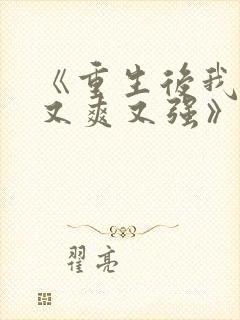 《重生后我
又爽又强》
翟亮